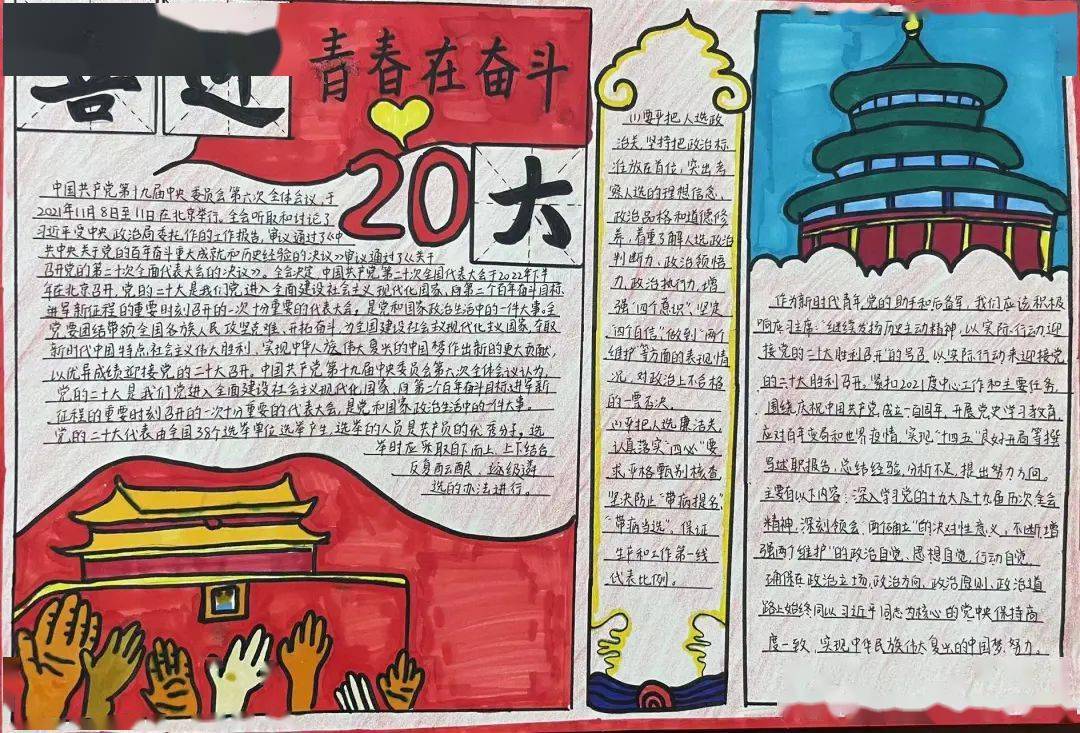 喜迎
青春在奋斗
20大
中国共产党第十九届中央委员会第六次全体会议,于
2021年11月8日至11日在北京举行。全会听取和讨论了
习近平受中央政治局委托作的工作报告,审议通过了《中
共中央关于党的百年奋斗重大成就和历史经验的决议》审议通过了《关于
召开党的第二十次全国代表大会的决议》。全会决定,中国共产党第二十次全国代表大会于2022年下半
年在北京召开,党的二十大是我们党进入全面建设社会主义现代化国家,向第二个百年奋斗目标
进军新征程的重要时刻召开的一次十分重要的代表大会,是党和国家政治生活中的一件大事。全
党要团结带领全国各族人民攻坚克难、开拓奋斗,为全国建设社会主义现代化主义国家、夺取
新时代中国特点社会主义伟大胜利、实现中华人族伟大复兴的中国梦作出新的更大贡献,
以优异成绩迎接党的二十大召开。中国共产党第十九届中央委员会第六次全体会议认为,
党的二十大是我们党进入全面建设社会主义现代化国家、向第二个百年奋斗目标进军新
征程的重要时刻召开的一次十分重要的代表大会,是党和国家政治生活中的一件大事。
党的二十大代表由全国38个选举单位选举产生,选举的人员是共产员的优秀分子。选
举时应采取自下而上、上下结合
反复酝酿、逐级遴
选的办法进行。
(1)要牢把人选政
治关,坚持把政治标
准放在首位,突出考
察人选的理想信念、
政治品格和道德修
养,着重了解人选政治
判断力、政治领悟
力、政治执行力,增
强"四个意识"、坚定
四个自信"、做到"两个
维护"等方面的表现情
况,对政治上不合格
的一票否决。
(2)牢把人选廉洁关,
认真落实"四必"要
求,严格甄别核查,
坚决防止"带病提名",
"带病当选",保证
生产和工作第一线
代表比例。
作为新时代青年,党的助手和后备军,我们应该积极
响应习主席:"继续发扬历史主动精神,以实际行动迎
接党的二十大胜利召开"的号召,以实际行动来迎接党
的二十大胜利召开。紧扣2021度中心工作和主要任务,
围绕庆祝中国共产党成立一百周年、开展党史学习教育、
应对百年变局和世界疫情,实现"十四五"良好开局等撰
写述职报告,总结经验,分析不足,提出努力方向。
主要有以下内容:深入学习党的十九大及十九届历次全会
精神,深刻领会"两个确立"的决对性意义,不断增
强两个维护"的政治自觉、思想自觉、行动自觉,
确保在政治立场、政治方向、政治原则、政治道
路上始终同以习近平同志为核心的党中央保持高
度一致,实现中华民族伟大复兴的中国梦努力。